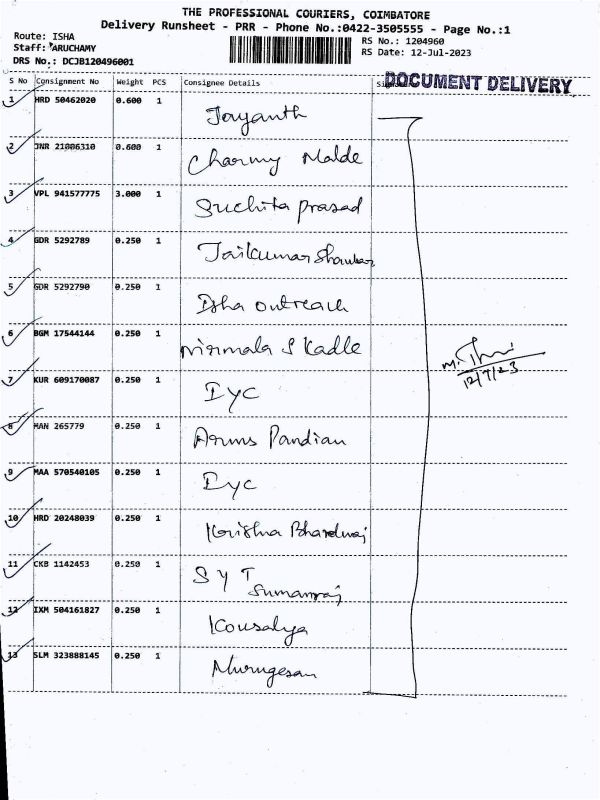 THE PROFESSIONAL COURIERS, COIMBATORE
Delivery Runsheet - PRR - Phone No.:0422-3505555 - Page No.:1
Route: ISHA
RS No.: 1204960
Staff: ARUCHAMY
RS Date: 12-Jul-2023
DRS No.: DCJB120496001
S No Consignment No Weight PCS Consignee Details
DOCUMENT DELIVERY
1 HRD 50462020 0.600 1 Jayanth
2 JNR 21006310 0.600 1 Charmy Malde
3 VPL 941577775 3.000 1 Suchita Prasad
4 GDR 5292789 0.250 1 Jaikumar Shankar
5 GDR 5292790 0.250 1 Isha outreach
6 BGM 17544144 0.250 1 Nirmala S Kadle
7 KUR 609170087 0.250 1 IYC
8 MAN 265779 0.250 1 Arums Pandian
9 MAA 570540105 0.250 1 IYC
10 HRD 20248039 0.250 1 Krishna Bhardwaj
11 CKB 1142453 0.250 1 S Y T
Sumanraj
12 IXM 504161827 0.250 1 Kousalya
13 SLM 323888145 0.250 1 Murugesan
12/7/23